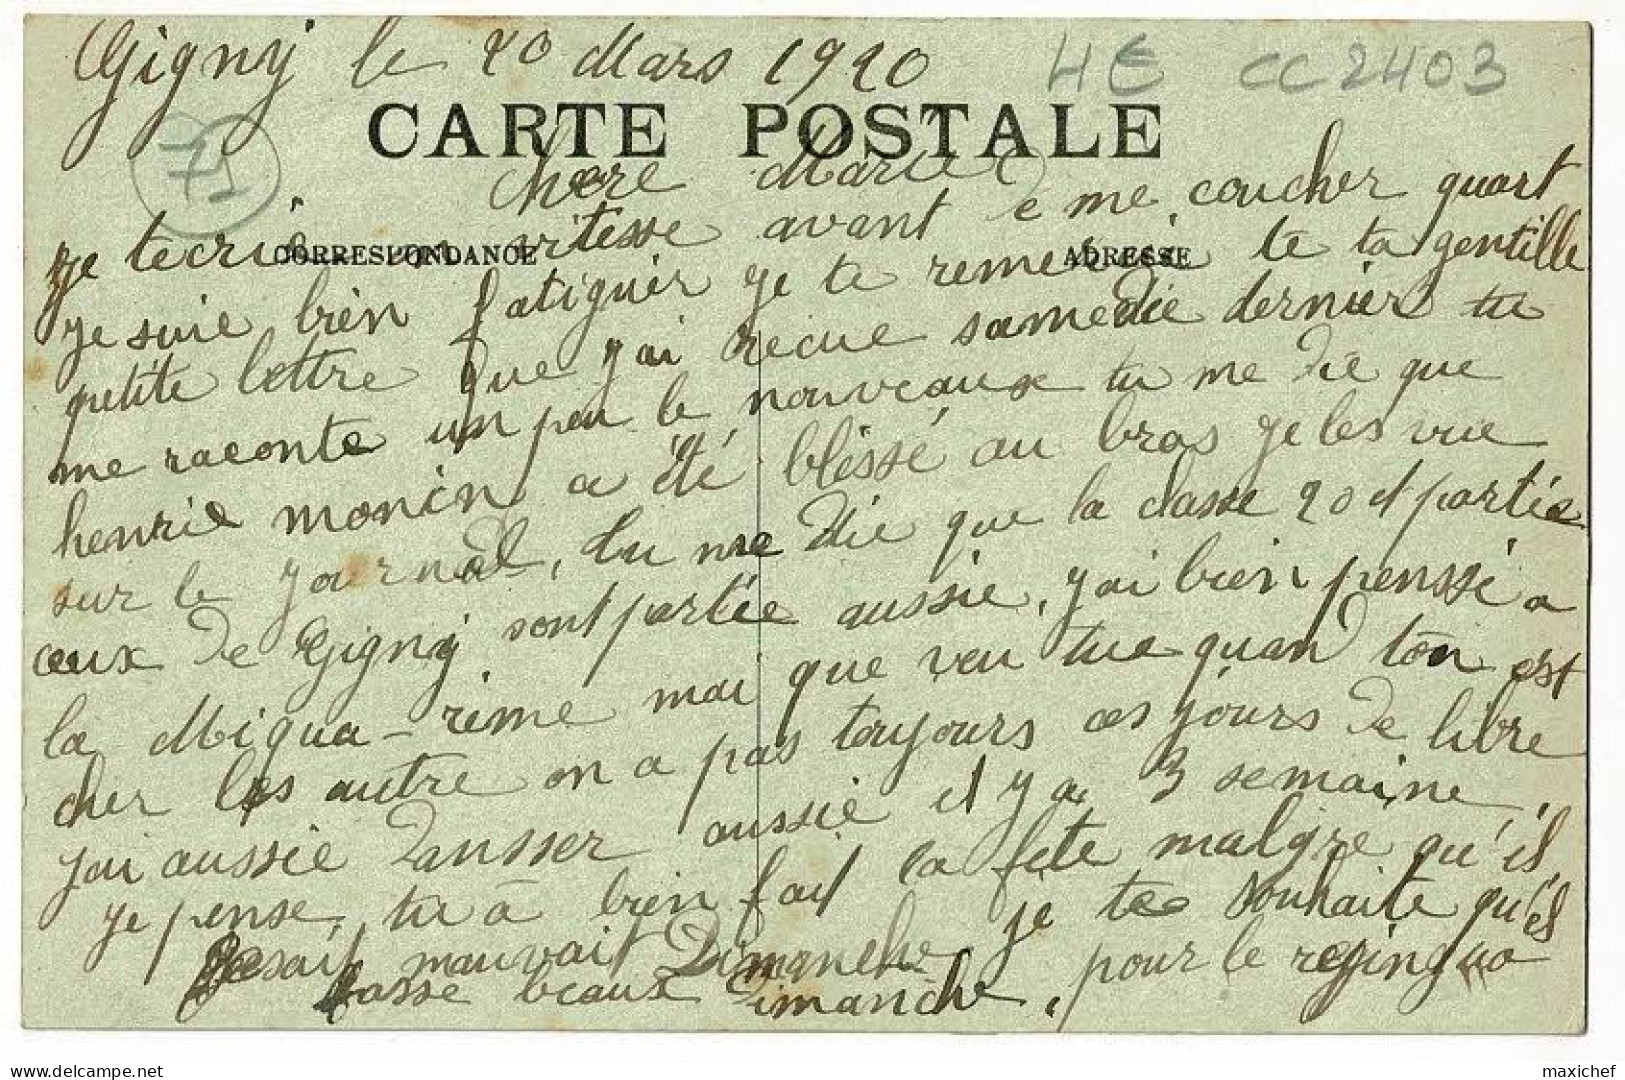 Gigny le 20 Mars 1920
4€ CC2403
CARTE POSTALE
71
Chere Marie
je tecrie en vitesse avant e me coucher quart
CORRESPONDANCE
ADRESSE
je suie bien fatiguér je te remercie te ta gentille
petite lettre que j'ai recue samedie dernier tu
me raconte un peu le nouveaux tu me die que
henrie monin a été bléssé au bras je les vue
sur le journal, tu me die que la classe 20 et partie
ceux de Gigny sont partée aussie, j'ai bien penssé a
la Miqua-rême mai que veu tue quand ton est
cher les autre on a pas toujours ces jours de libre
j'ai aussie dansser aussie il y a 3 semaine,
je pense, tu a bien fait la fête malgre qu'il
fesait mauvait Dimanche je te souhaite qu'il
fasse beaux Dimanche, pour le reginguo
maxichef
www.delcampe.net